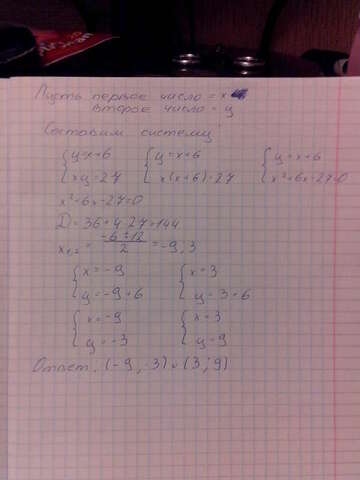 Пусть первое число = x
второе число = y
Составим систему
{y=x+6 {y=x+6 {y=x+6
{xy=27 {x(x+6)=27 {x²+6x-27=0
x²-6x-27=0
D=36+4·27=144
x₁,₂ = (-6±12)/2 = -9; 3
{x=-9 {x=3
{y=-9+6 {y=3+6
{x=-9 {x=3
{y=-3 {y=9
Ответ. (-9, -3) и (3; 9)